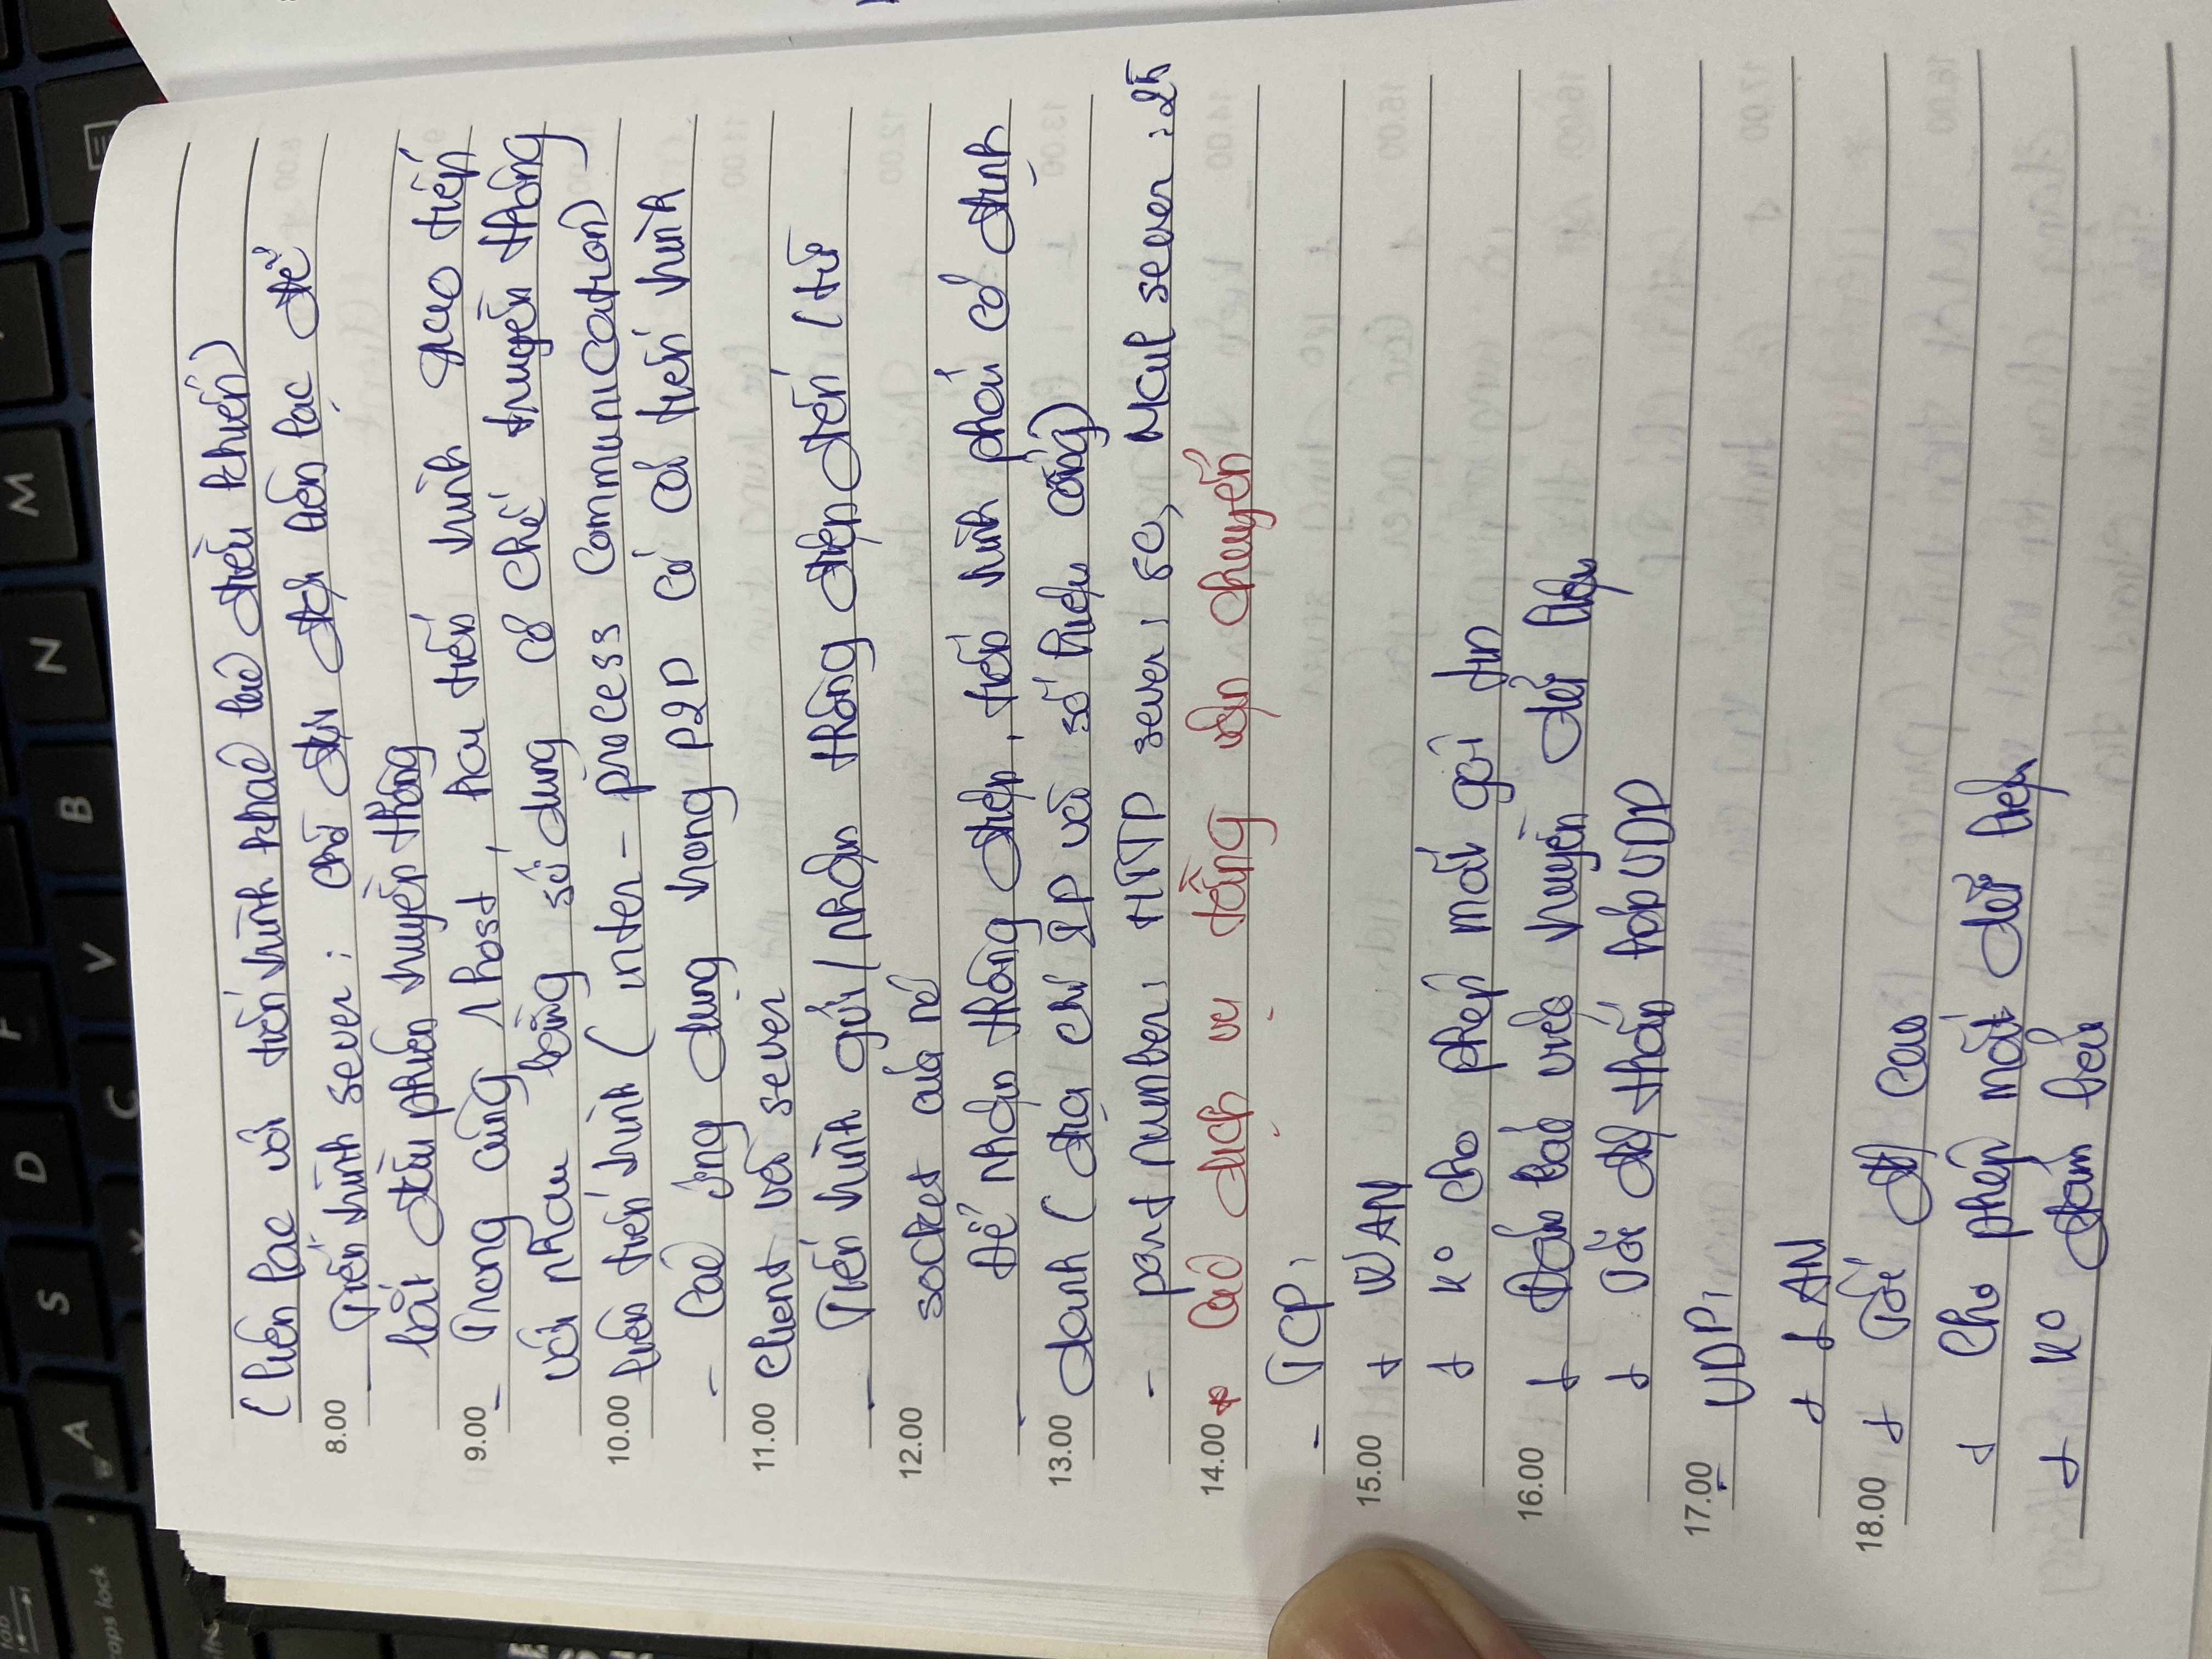 tab
caps lock
A S D F
X C V B N M
(liên lạc với tiến trình khác lúc điều khiển)
8.00 - Tiến trình sever : chờ đợi đợi liên lạc để
bắt đầu phiên truyền thông
9.00 - Trong cùng 1 host, hai tiến trình giao tiếp
với nhau bằng sử dụng cơ chế truyền thông
10.00 liên tiến trình (inter-process communication)
- Các ứng dụng trong P2P có cả tiến trình
11.00 client và sever
- Tiến trình gửi/nhận thông điệp đến/từ
12.00 socket của nó
- Để nhận thông điệp, tiến trình phải có định
13.00 danh (địa chỉ IP và số hiệu cổng)
- port number: HTTP sever: 80, Mail sever: 25
14.00 * Các dịch vụ tầng vận chuyển
- TCP:
15.00 + WAN
+ K° cho phép mất gói tin
16.00 + Đảm bảo việc truyền dữ liệu
+ Tốc độ thấp hơn UDP
17.00 - UDP:
+ LAN
18.00 + Tốc độ cao
+ Cho phép mất dữ liệu
+ K° đảm bảo